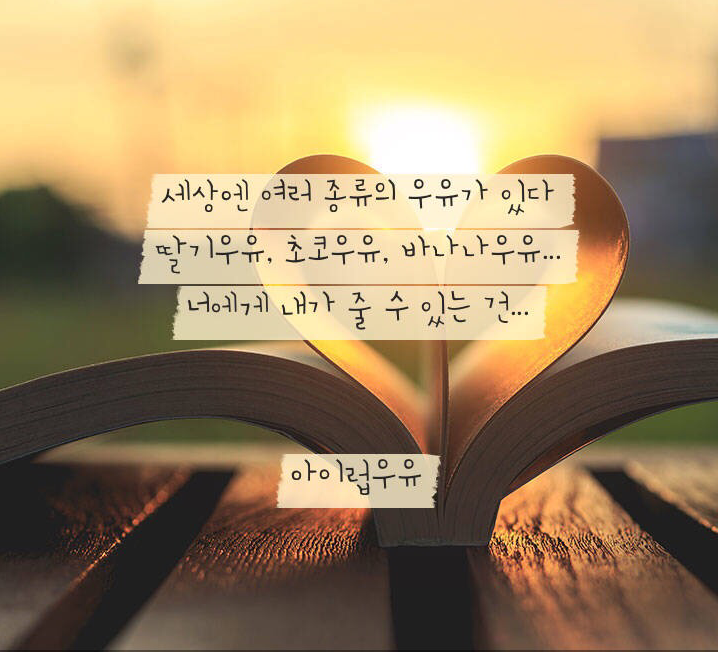 세상엔 여러 종류의 우유가 있다
딸기우유, 초코우유, 바나나우유...
너에게 내가 줄 수 있는 건...
아이럽우유